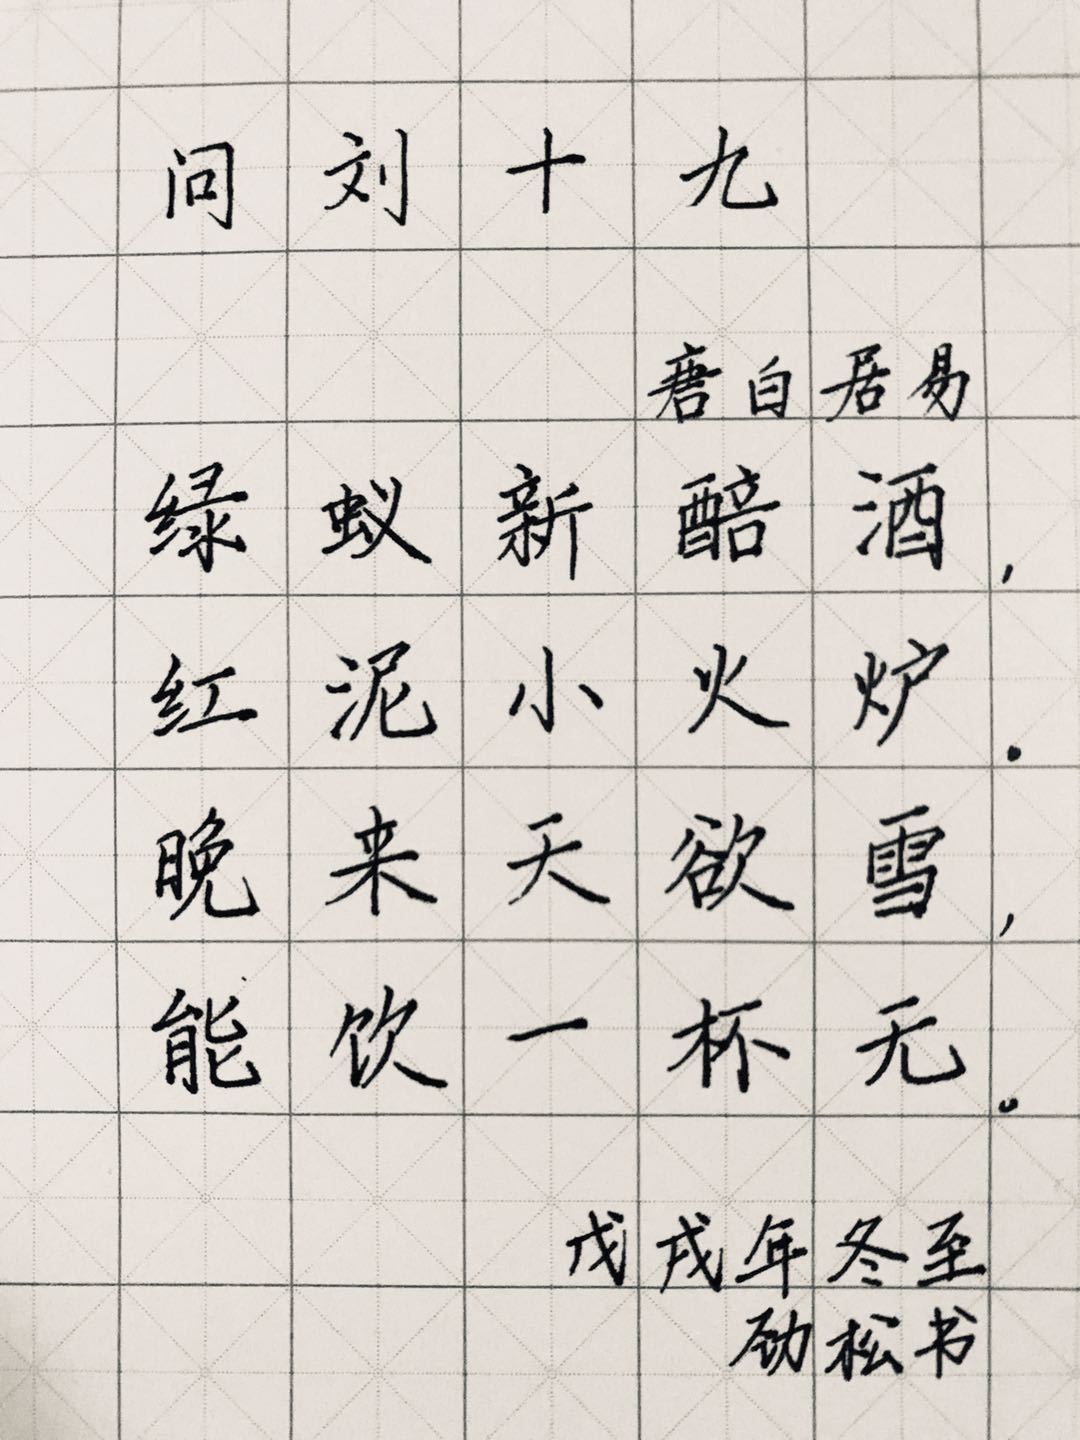 问刘十九
唐白居易
绿蚁新醅酒，
红泥小火炉。
晚来天欲雪，
能饮一杯无。
戊戌年冬至
劲松书